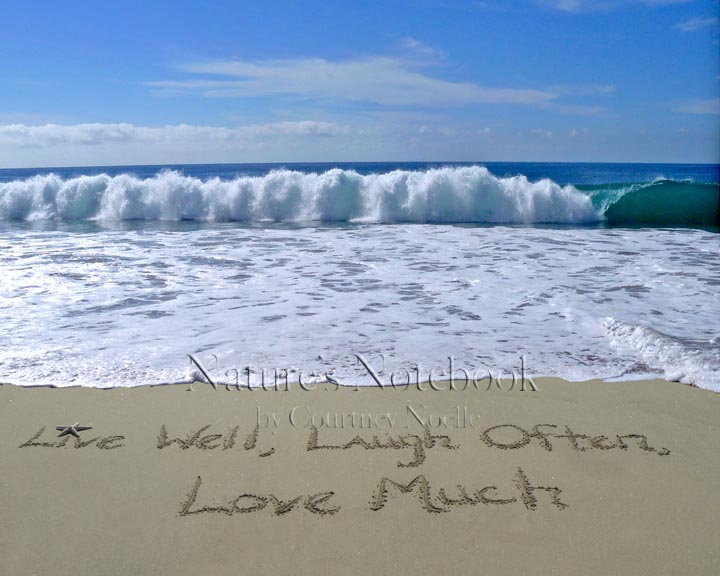 Nature's Notebook
by Courtney Noelle
Live Well, Laugh Often,
Love Much